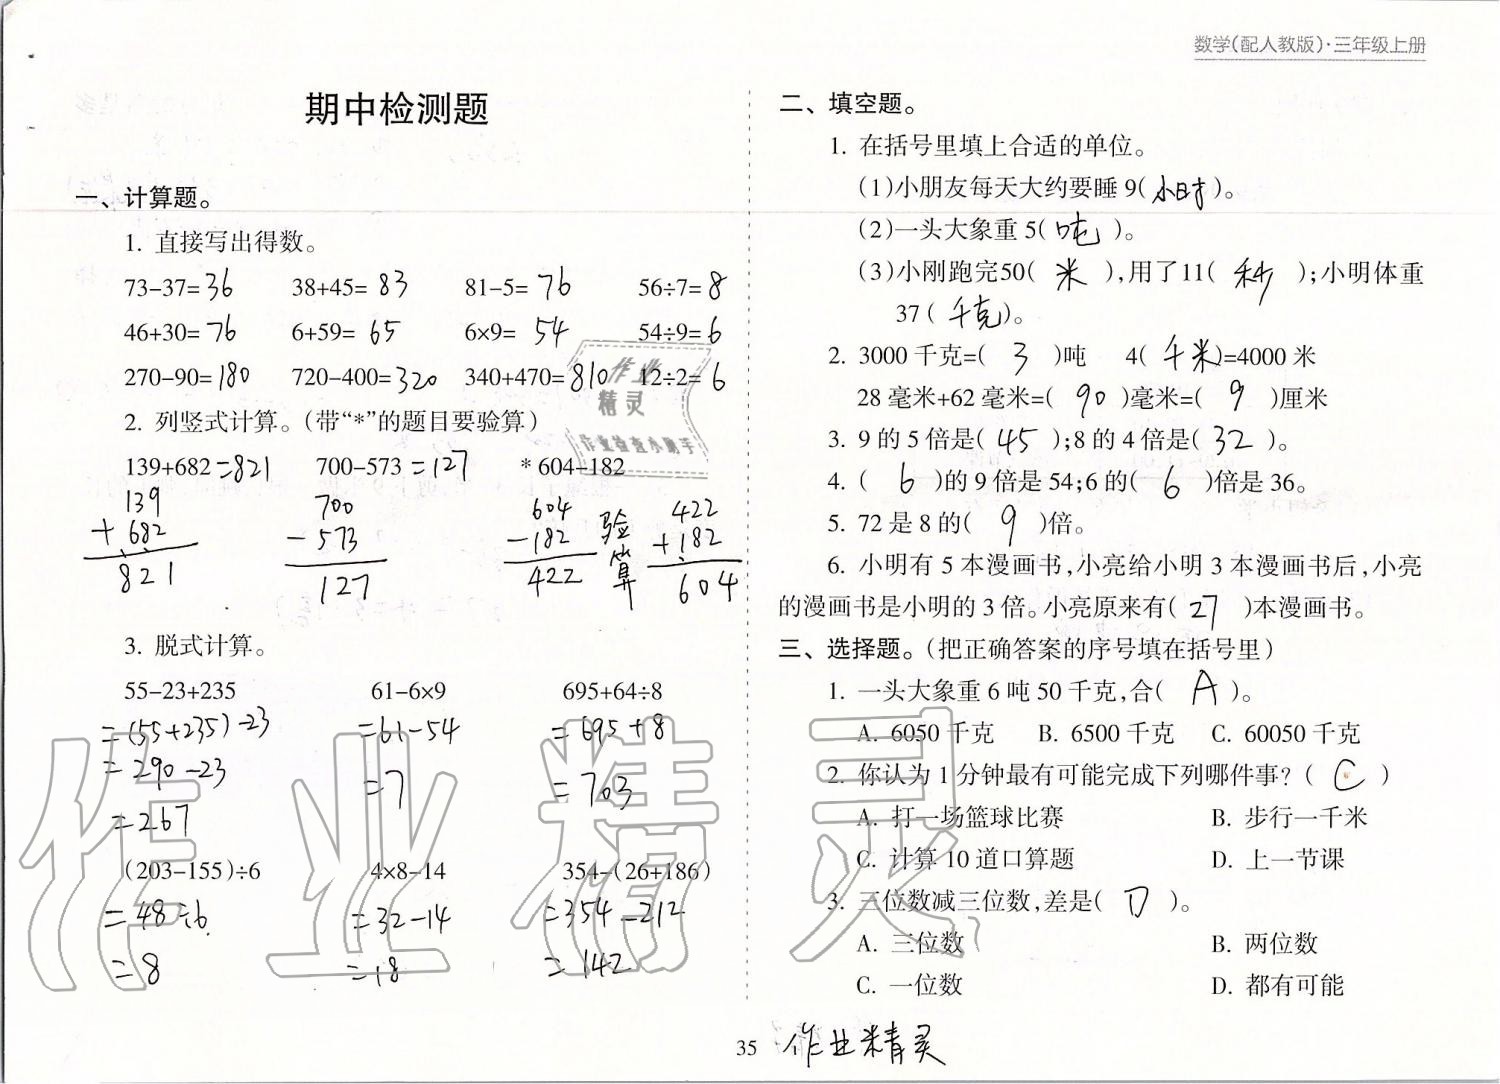 数学(配人教版)·三年级上册
期中检测题
一、计算题。
1. 直接写出得数。
73-37=36 38+45=83 81-5=76 56÷7=8
46+30=76 6+59=65 6×9=54 54÷9=6
270-90=180 720-400=320 340+470=810 12÷2=6
2. 列竖式计算。(带“*”的题目要验算)
139+682=821 700-573=127 *604-182
139 700 604 验 422
+682 -573 -182 算 +182
821 127 422 604
3. 脱式计算。
55-23+235 61-6×9 695+64÷8
=(55+235)-23 =61-54 =695+8
=290-23 =7 =703
=267
(203-155)÷6 4×8-14 354-(26+186)
=48÷6 =32-14 =354-212
=8 =18 =142
二、填空题。
1. 在括号里填上合适的单位。
(1)小朋友每天大约要睡9(小时)。
(2)一头大象重5(吨)。
(3)小刚跑完50(米),用了11(秒);小明体重
37(千克)。
2. 3000千克=(3)吨 4(千米)=4000米
28毫米+62毫米=(90)毫米=(9)厘米
3. 9的5倍是(45);8的4倍是(32)。
4. (6)的9倍是54;6的(6)倍是36。
5. 72是8的(9)倍。
6. 小明有5本漫画书,小亮给小明3本漫画书后,小亮
的漫画书是小明的3倍。小亮原来有(27)本漫画书。
三、选择题。(把正确答案的序号填在括号里)
1. 一头大象重6吨50千克,合(A)。
A. 6050千克 B. 6500千克 C. 60050千克
2. 你认为1分钟最有可能完成下列哪件事?(C)
A. 打一场篮球比赛 B. 步行一千米
C. 计算10道口算题 D. 上一节课
3. 三位数减三位数,差是(D)。
A. 三位数 B. 两位数
C. 一位数 D. 都有可能
35 作业精灵
作业精灵
作业
精灵
作业检查小助手